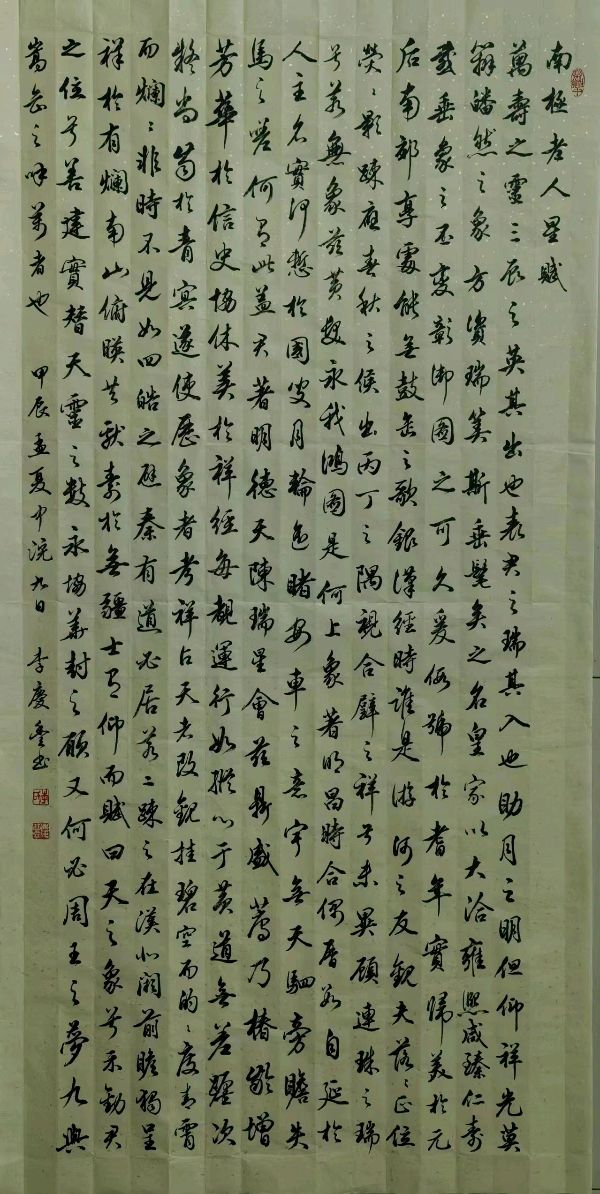 南極老人星賦
萬壽之靈三辰之英其出也表君之瑞其入也助月之明但仰祥光莫
辨皤然之象方資瑞筭斯垂髦矣之名皇家以大洽雍熙咸臻仁壽
垂象之丕变彰御圖之可久爰優號於耆年實歸美於元
后南郊享處能無鼓缶之歌銀漢經時誰是游河之友觀夫落落正位
熒熒影疎應春秋之候出丙丁之隅視合璧之祥兮未異顧連珠之瑞
兮若無象茲黃髮永我鴻圖是何上象著明昌時合偶曆数自延於
人主名實何慙於國叟月輪迥睹安車之意字無天駟旁瞻失
馬之嗟何有此蓋君著明德天陳瑞星會茲鼎盛薦乃椿齡增
芳華於信史協休美於祥經每覩運行如縱心于黃道無差躔次
疑尚齒於青冥遂使歷象者考祥占天者改觀挂碧空而的的度青霄
而爛爛非時不見如四皓之避秦有道必居若二疎之在漢北闕前瞻獨呈
祥於有爛南山俯暎共獻壽於無疆士有仰而賦曰天之象兮示勸君
之位兮善建實替天靈之数永協華封之願又何必周王之夢九與
嵩岳之呼萬者也 甲辰孟夏中浣九日 李慶豐书